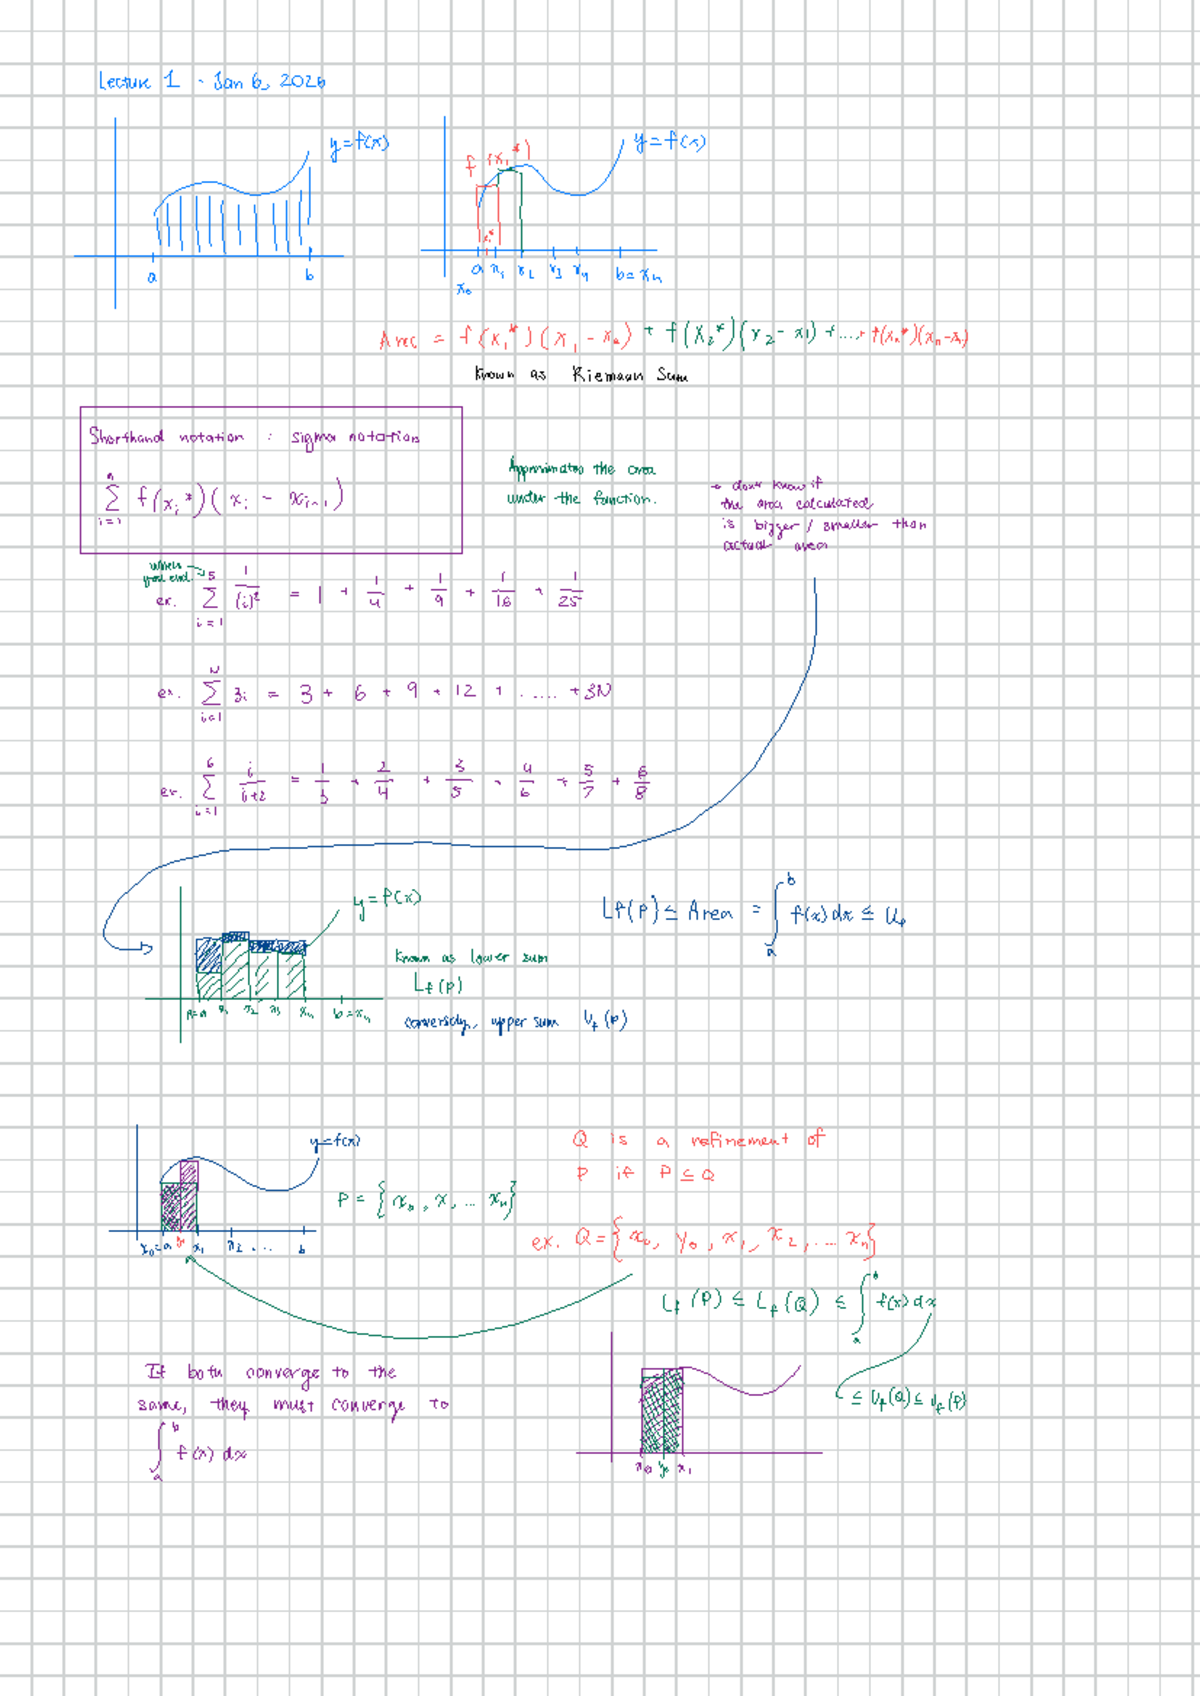 Lecture 1 - Jan 6, 2026
y=f(x)
a b
f(x₁*)
y=f(x)
x₁*
a x₁ x₂ x₃ x₄ b=xₙ
x₀
Area = f(x₁*)(x₁ - x₀) + f(x₂*)(x₂ - x₁) + .... + f(xₙ*)(xₙ-xᵢ)
Known as Riemann Sum
Shorthand notation : sigma notation
n
∑ f(xᵢ*)(xᵢ - xᵢ₋₁)
i=1
Approximates the area
under the function.
→ don't know if
the area calculated
is bigger / smaller than
actual area
where
you end
5
ex. ∑ 1/(i)² = 1 + 1/4 + 1/9 + 1/16 + 1/25
i=1
N
ex. ∑ 3i = 3 + 6 + 9 + 12 + ..... + 3N
i=1
6
ex. ∑ i/i+2 = 1/3 + 2/4 + 3/5 + 4/6 + 5/7 + 6/8
i=1
y=f(x)
x₁ x₂ x₃ x₄ b=xₙ
Lf(P) ≤ Area = ∫ₐᵇ f(x)dx ≤ Uf
Known as lower sum
Lf(P)
conversely, upper sum Uf(P)
y=f(x)
P = {x₀, x, ... xₙ}
x₀=a y x₁ x₂ ... b
Q is a refinement of
P if P ⊆ Q
ex. Q = {x₀, y₀, x₁, x₂, ... xₙ}
Lf(P) ≤ Lf(Q) ≤ ∫ₐᵇ f(x)dx
≤ Uf(Q) ≤ Uf(P)
x₀ y₀ x₁
If both converge to the
same, they must converge to
∫ₐᵇ f(x) dx